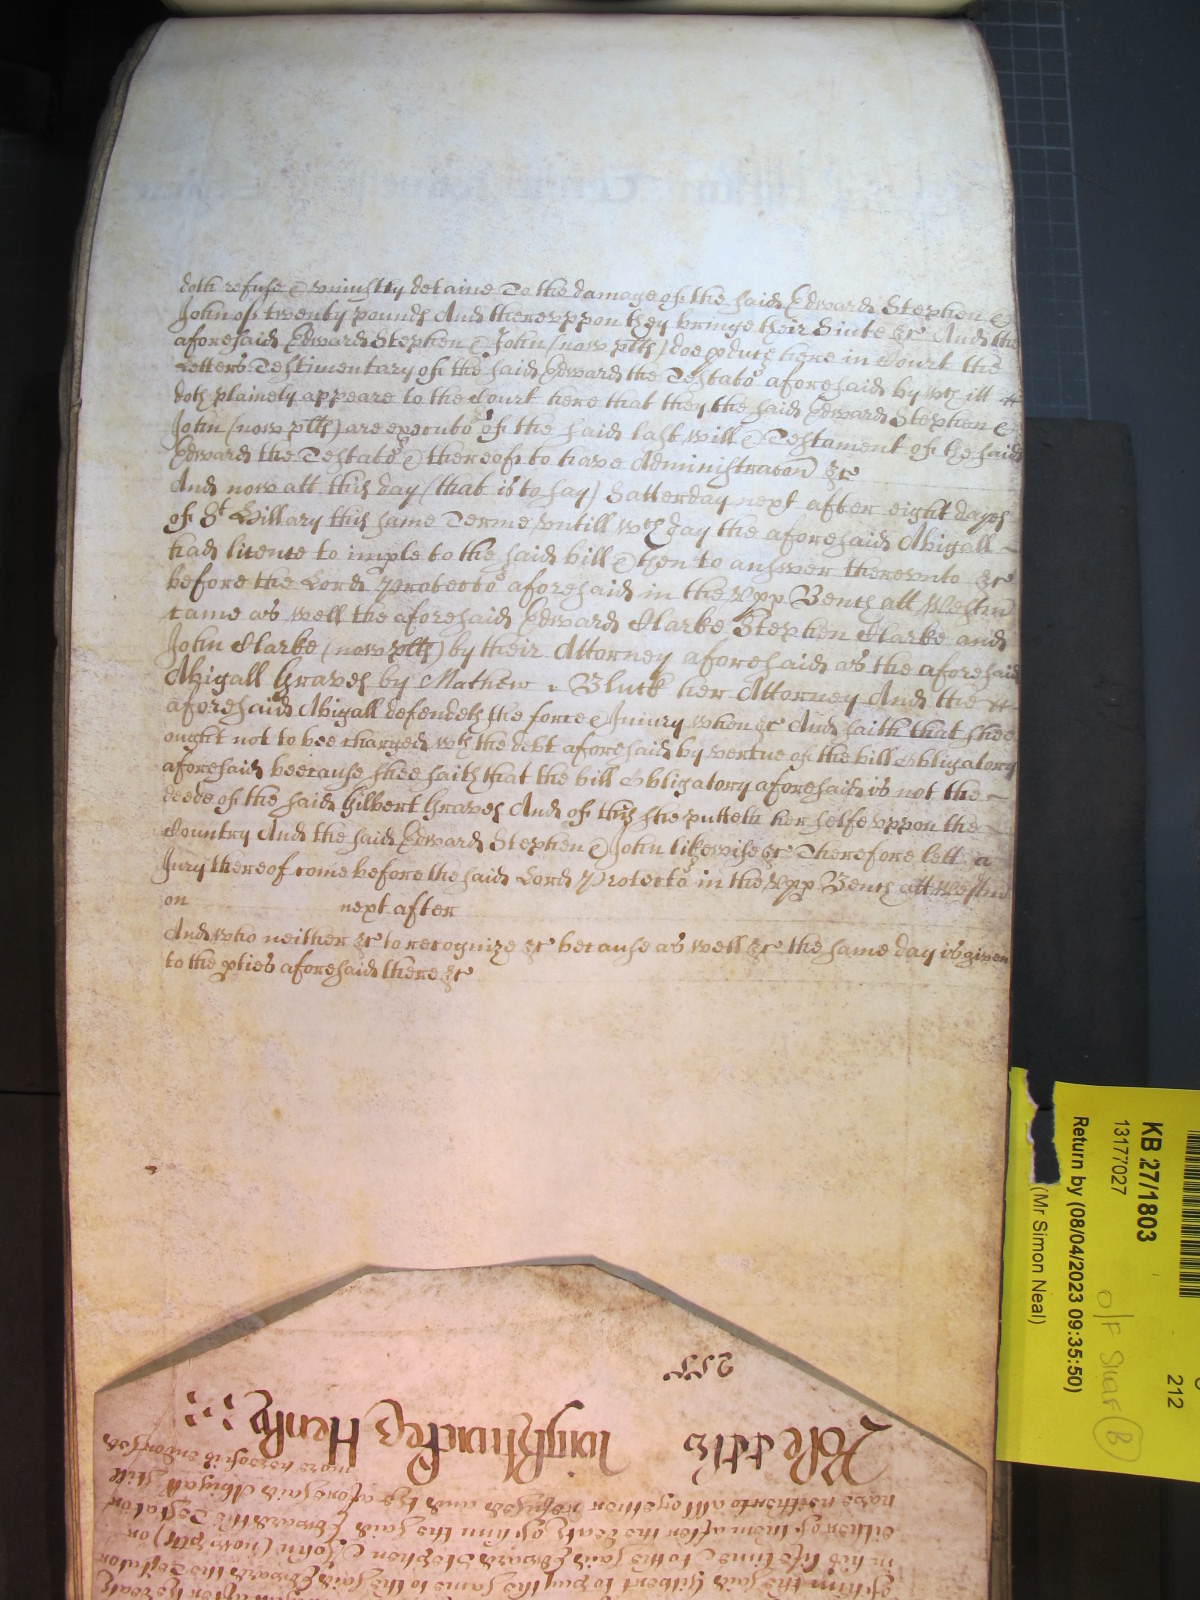 doth refuse & uniustly detaine To the damage of the said Edward Stephen &
John of twenty pounds And thereuppon they bringe their Suite &c And the
aforesaid Edward Stephen & John (now plts) doe pduce here in Court the
Letters Testimentary of the said Edward the Testator aforesaid by wch itt
doth plainely appeare to the Court here that they the said Edward Stephen &
John (now plts) are executors of the said last will & Testament of the said
Edward the Testator & thereof to have Administracon &c
And now att this day (that is to say) Satterday next after eight dayes
of St Hillary this same Terme untill wch day the aforesaid Abigall
had licence to imple to the said bill & then to answer thereunto &c
before the Lord Protector aforesaid in the Upp Bench att Westm
came as well the aforesaid Edward Clarke Stephen Clarke and
John Clarke (now plts) by their Attorney aforesaid as the aforesaid
Abigall Graves by Mathew Bluck her Attorney And the
aforesaid Abigall defendeth the force & Iniury when &c And saith that shee
ought not to bee charged wth the debt aforesaid by vertue of the bill obligatory
aforesaid beecause shee saith that the bill obligatory aforesaid is not the
deede of the said Gilbert Graves And of this she putteth her selfe uppon the
Country And the said Edward Stephen & John likewise &c Therefore lett a
Jury thereof come before the said Lord Protector in the Upp Bench att Westm
on next after
And who neither &c to recognize &c because as well &c the same day is given
to the pties aforesaid there &c
KB 27/1803
13177027
Return by (08/04/2023 09:35:50)
(Mr Simon Neal)
212
B
255
more hereof is endorsed
have neitherto alltogether refused and the aforesaid Abigall still
either of them after the death of him the said Edward the Testator
in his life time & to the said Edward Stephen & John (now plts) or
of him the said Gilbert to pay the same to the said Edward the Testator